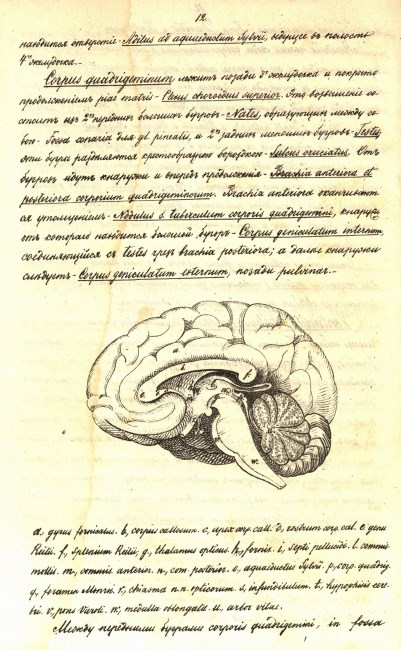 12.
находится отверстіе - Aditus ad aquaeductum Sylvii, ведущее въ полость
4го желудочка. -
Corpus quadrigeminum лежитъ позади 3го желудочка и покрыто
продолженіемъ piae matris - Plexus choroideus superior. Это возвышеніе со-
стоитъ изъ 2хъ переднихъ большихъ бугровъ - Nates, образующихъ между со-
бою - Fossa conaria для gl. pinealis, и 2хъ заднихъ меньшихъ бугровъ - Testes,
эти бугры раздѣляются крестообразною бороздкою - Sulcus cruciatus. Отъ
бугровъ идутъ кнаружи и впередъ продолженія - Brachia anteriora et
posteriora corporum quadrigeminorum. Brachia anteriora оканчивают-
ся утолщеніемъ - Nodulus s. tuberculum corporis quadrigemini, кнаружи
отъ котораго находится большой бугоръ - Corpus geniculatum internum,
соединяющійся съ testes чрезъ brachia posteriora; а далѣе кнаружи
слѣдуетъ - Corpus geniculatum externum, позади pulvinar. -
a, gyrus fornicatus. b, corpus callosum. c, apex corp. call. d, rostrum corp. cal. e, genu
Reilii. f, splenium Reilii. g, thalamus opticus. h, fornix. i, septi pellucidi. l, commis.
mollis. m, commis. anterior. n, com. posterior. o, aquaeductus Sylvii. p, corp. quadrig.
q, foramen Monroi. r, chiasma n.n. opticorum. s, infundibulum. t, hypophisis cere-
bri. v, pons Varoli. w, medulla oblongata. u, arbor vitae.
Между передними буграми corporis quadrigemini, in fossa